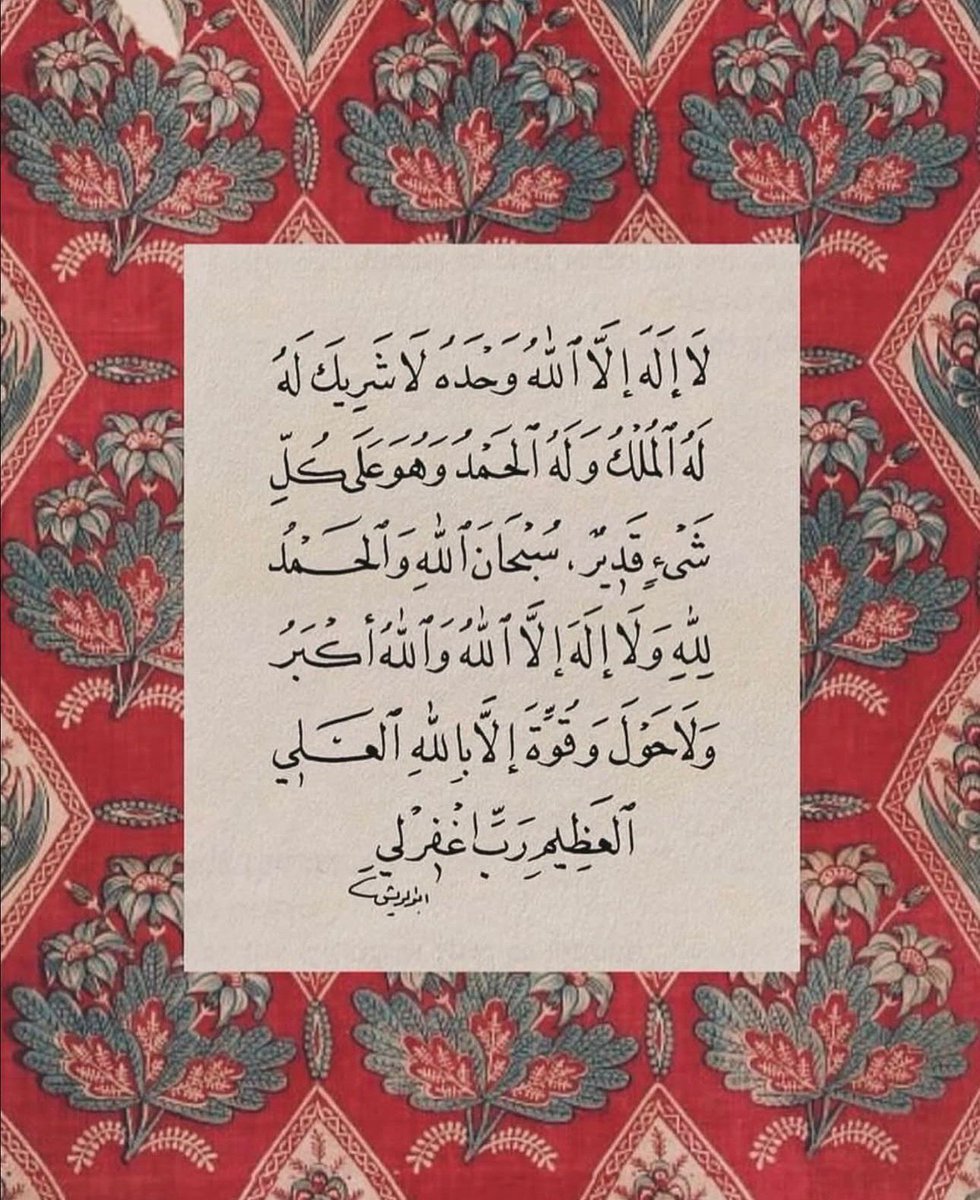 لَا إِلَهَ إِلَّا ٱللهُ وَحْدَهُ لَا شَرِيكَ لَهُ
لَهُ ٱلْمُلْكُ وَلَهُ ٱلْحَمْدُ وَهُوَ عَلَى كُلِّ
شَيْءٍ قَدِيرٌ، سُبْحَانَ ٱللهِ وَٱلْحَمْدُ
لِلّٰهِ وَلَا إِلَهَ إِلَّا ٱللهُ وَٱللهُ أَكْبَرُ
وَلَا حَوْلَ وَ قُوَّةَ إِلَّا بِاللهِ ٱلْعَلِي
ٱلْعَظِيمِ رَبِّ اغْفِرْ لِي